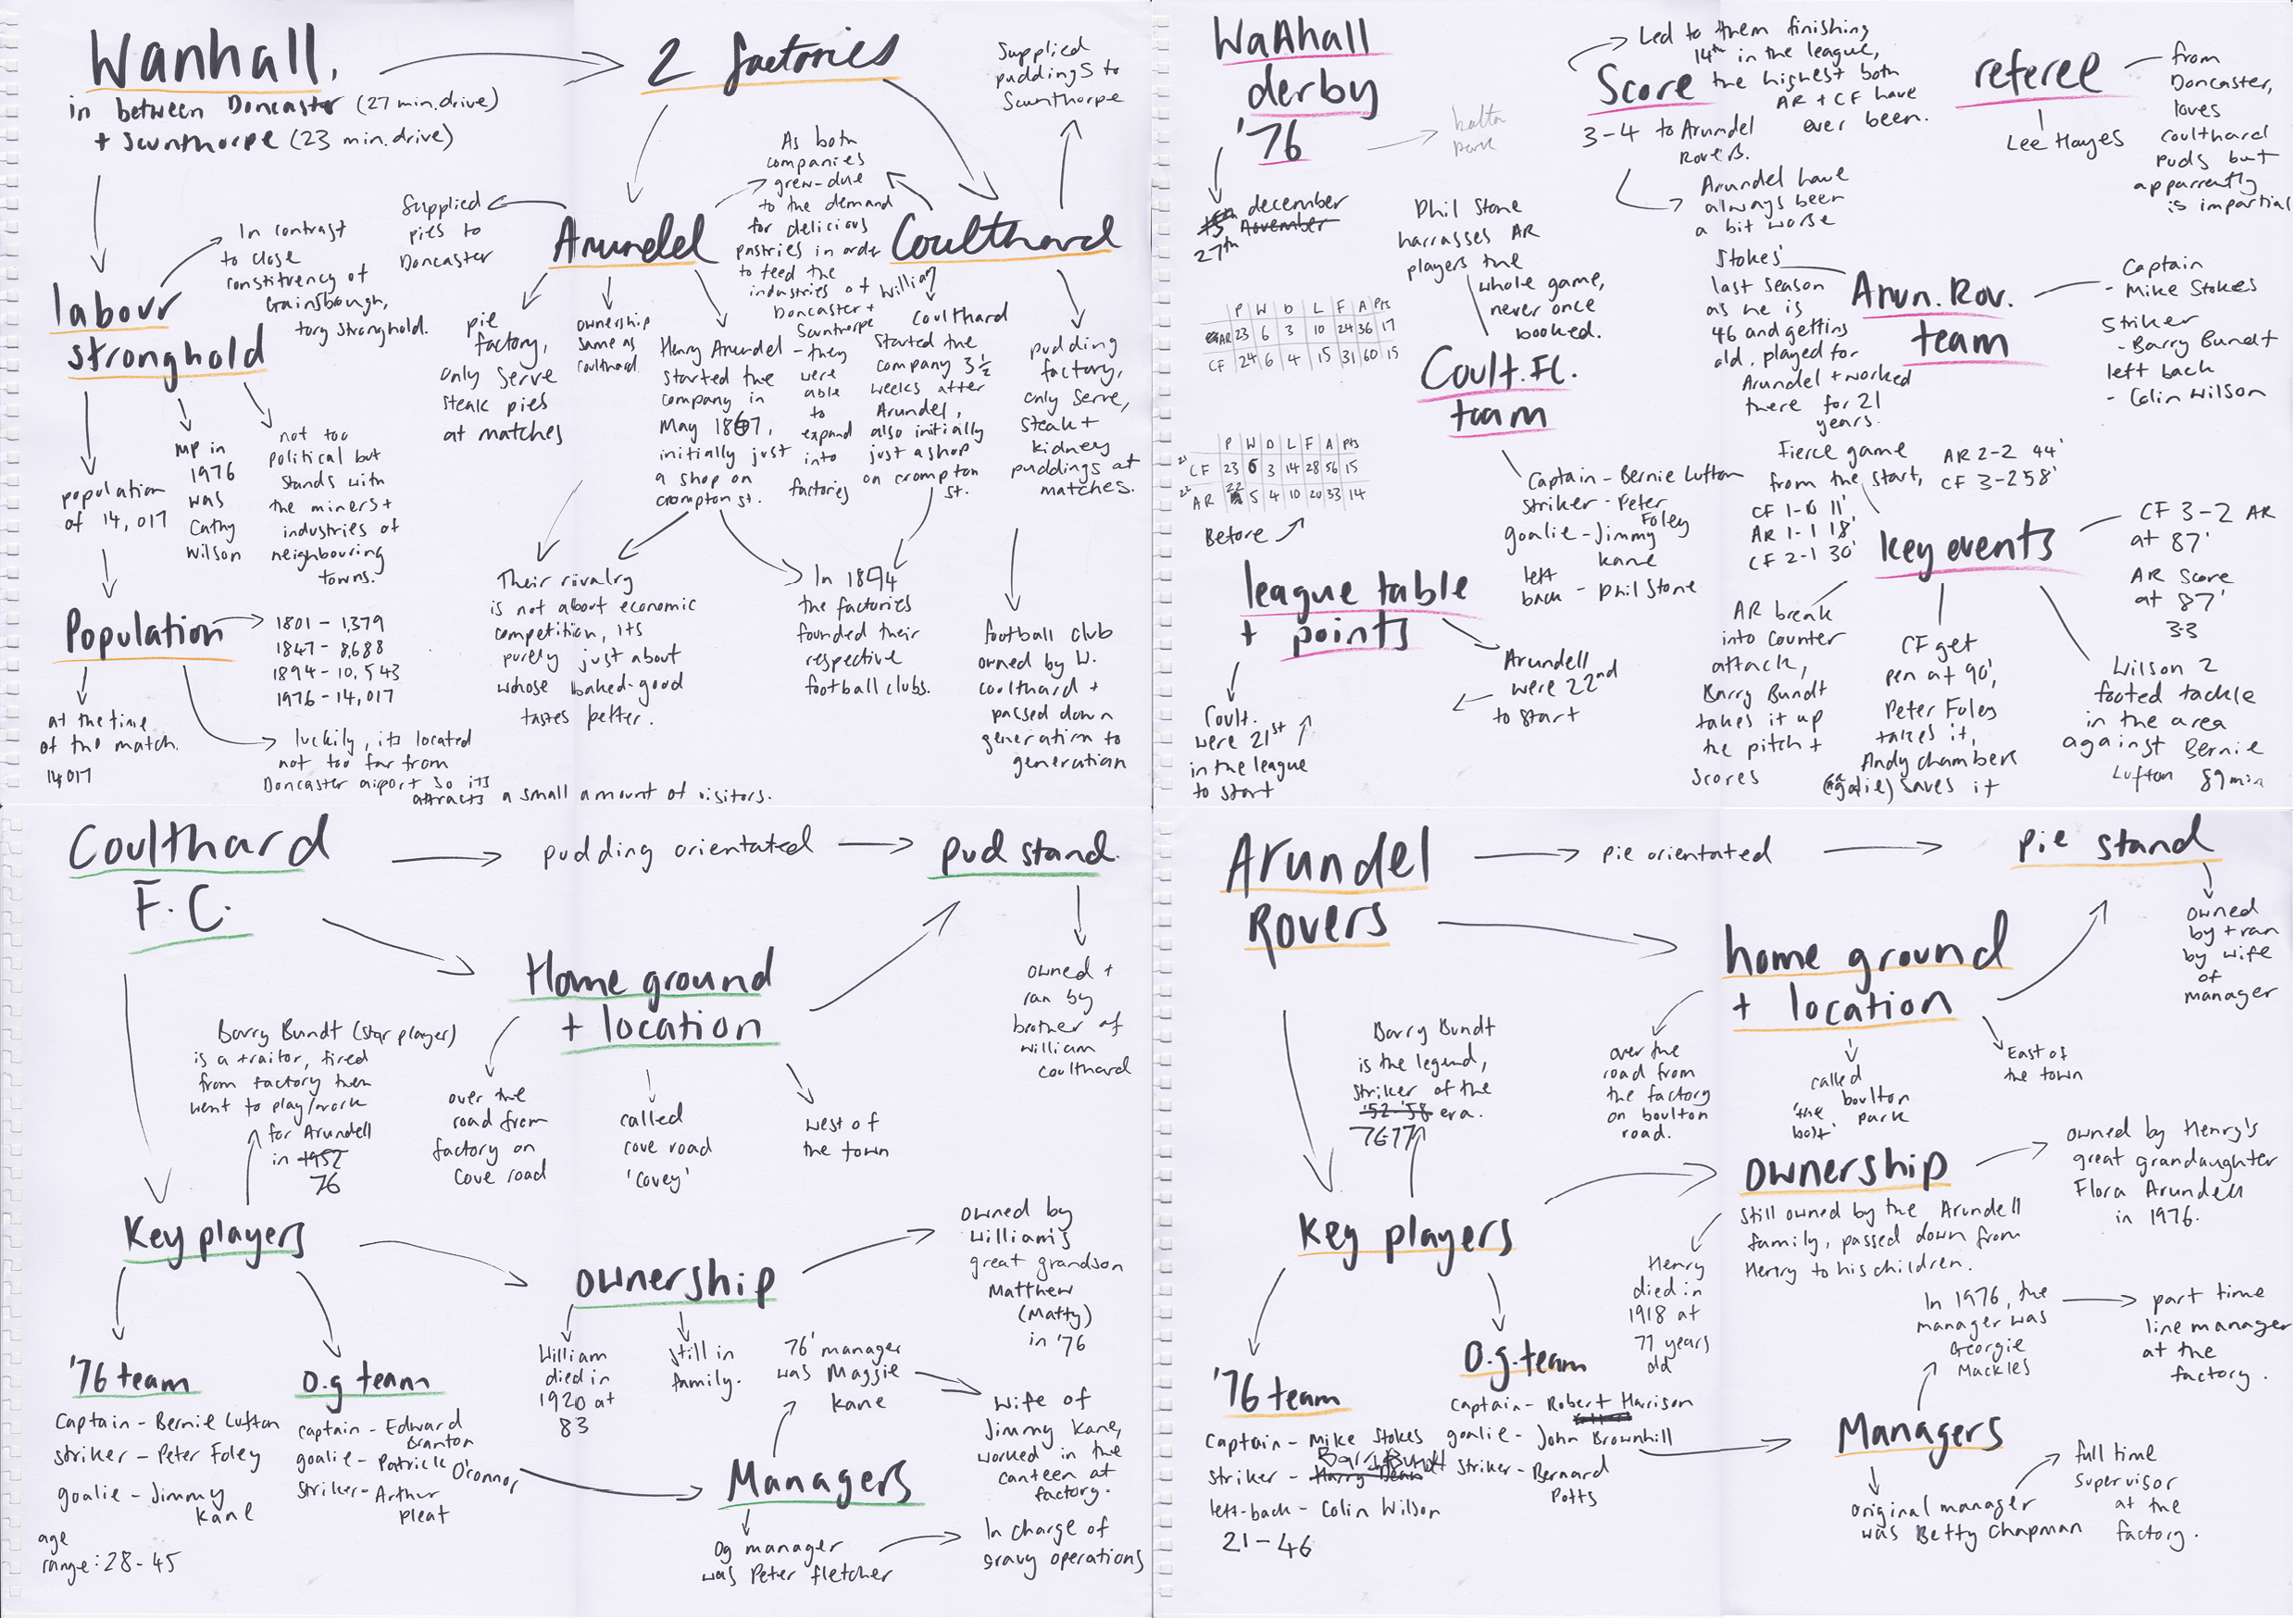 Wanhall.
in between Doncaster (27 min.drive)
+ Scunthorpe (23 min.drive)
2 factories
Supplied
puddings to
Scunthorpe
As both
companies
grew - due
to the demand
for delicious
pastries in order
to feed the
industries of
Doncaster +
Scunthorpe
- they
were
able
to
expand
into
factories
Supplied
pies to
Doncaster
Arundel
Coulthard
In contrast
to close
constituency of
Gainsbrough,
tory stronghold.
labour
stronghold
pie
factory,
only serve
steak pies
at matches
ownership
same as
Coulthard.
Henry Arundel
started the
company in
May 1867,
initially just
a shop on
crompton st.
William
Coulthard
started the
company 3 ½
weeks after
Arundel,
also initially
just a shop
on crompton
st.
pudding
factory,
only serve,
steak +
kidney
puddings at
matches.
population
of 14,017
MP in
1976
was
Cathy
Wilson
not too
political but
stands with
the miners +
industries of
neighbouring
towns.
Population
1801 - 1,379
1847 - 8,688
1894 - 10,543
1976 - 14,017
at the time
of the match.
14,017
luckily, its located
not too far from
Doncaster aiport so its
attracts a small amount of visitors.
Their rivalry
is not about economic
competition, its
purely just about
whose baked-good
tastes better.
In 1894
the factories
founded their
respective
football clubs.
football club
owned by W.
coulthard +
passed down
generation to
generation
WaAhall
derby
'76
balta
park
15th december
27th November
Led to them finishing
14th in the league,
the highest both
AR + CF have
ever been.
Score
3-4 to Arundel
Rovers.
Arundel have
always been
a bit worse
referee
Lee Hayes
from
Doncaster,
loves
coulthard
puds but
apparrently
is impartial
Phil Stone
harrasses AR
players the
whole game,
never once
booked.
P W D L F A Pts
AR 23 6 3 10 24 36 17
CF 24 6 4 15 31 60 15
Coult. F.C.
team
Stokes'
last season
as he is
46 and getting
old, played for
Arundel + worked
there for 21
years.
Arun. Rov.
team
Captain
- Mike Stokes
Striker
- Barry Bundt
left back
- Colin Wilson
P W D L F A Pts
21 CF 23 6 3 14 28 56 15
22 AR 22 5 4 10 20 33 14
Before
Captain - Bernie Lufton
striker - Peter
Foley
goalie - Jimmy
kane
left
back - Phil Stone
Fierce game
from the start,
CF 1-0 11',
AR 1-1 18'
CF 2-1 30'
AR 2-2 44'
CF 3-2 58'
key events
CF 3-2 AR
at 87'
AR score
at 87'
3-3
league table
+ points
Coult.
were 21st
in the league
to start
Arundell
were 22nd
to start
AR break
into counter
attack,
Barry Bundt
takes it up
the pitch +
scores
CF get
pen at 90',
Peter Foley
takes it,
Andy chambers
(goalie) saves it
Wilson 2
footed tackle
in the area
against Bernie
Lufton 89min
Coulthard
F.C.
pudding orientated
pud stand.
Home ground
+ location
owned +
ran by
brother of
william
Coulthard
Barry Bundt (star player)
is a traitor, fired
from factory then
went to play/work
for Arundell
in 1952
76
over the
road from
factory on
Cove road
called
cove road
'covey'
west of
the town
Key players
ownership
owned by
William's
great grandson
Matthew
(Matty)
in '76
William
died in
1920 at
83
still in
family.
76' manager
was Maggie
Kane
wife of
Jimmy Kane,
worked in the
canteen at
factory.
'76 team
Captain - Bernie Lufton
striker - Peter Foley
goalie - Jimmy
Kane
age
range: 28-45
o.g team
captain - Edward
Branton
goalie - Patrick O'connor
striker - Arthur
pleat
Managers
Og manager
was Peter fletcher
In charge of
gravy operations
Arundel
Rovers
pie orientated
pie stand
owned
by + ran
by wife
of
manager
home ground
+ location
Barry Bundt
is the legend,
striker of the
'52-'58 era.
76 77
over the
road from
the factory
on boulton
road.
called
boulton
'the park
bolt'
East of
the town
Key players
ownership
still owned by the Arundell
family, passed down from
Henry to his children.
owned by Henry's
great grandaughter
Flora Arundell
in 1976.
Henry
died in
1918 at
77 years
old
In 1976, the
manager was
Georgie
Mackles
part time
line manager
at the
factory.
'76 team
Captain - Mike Stokes
Barry Bundt
striker - Harry Dean
left-back - Colin Wilson
21-46
O.g. team
captain - Robert Harrison
goalie - John Brownhill
striker - Bernard
Potts
Managers
original manager
was Betty Chapman
full time
supervisor
at the
factory.